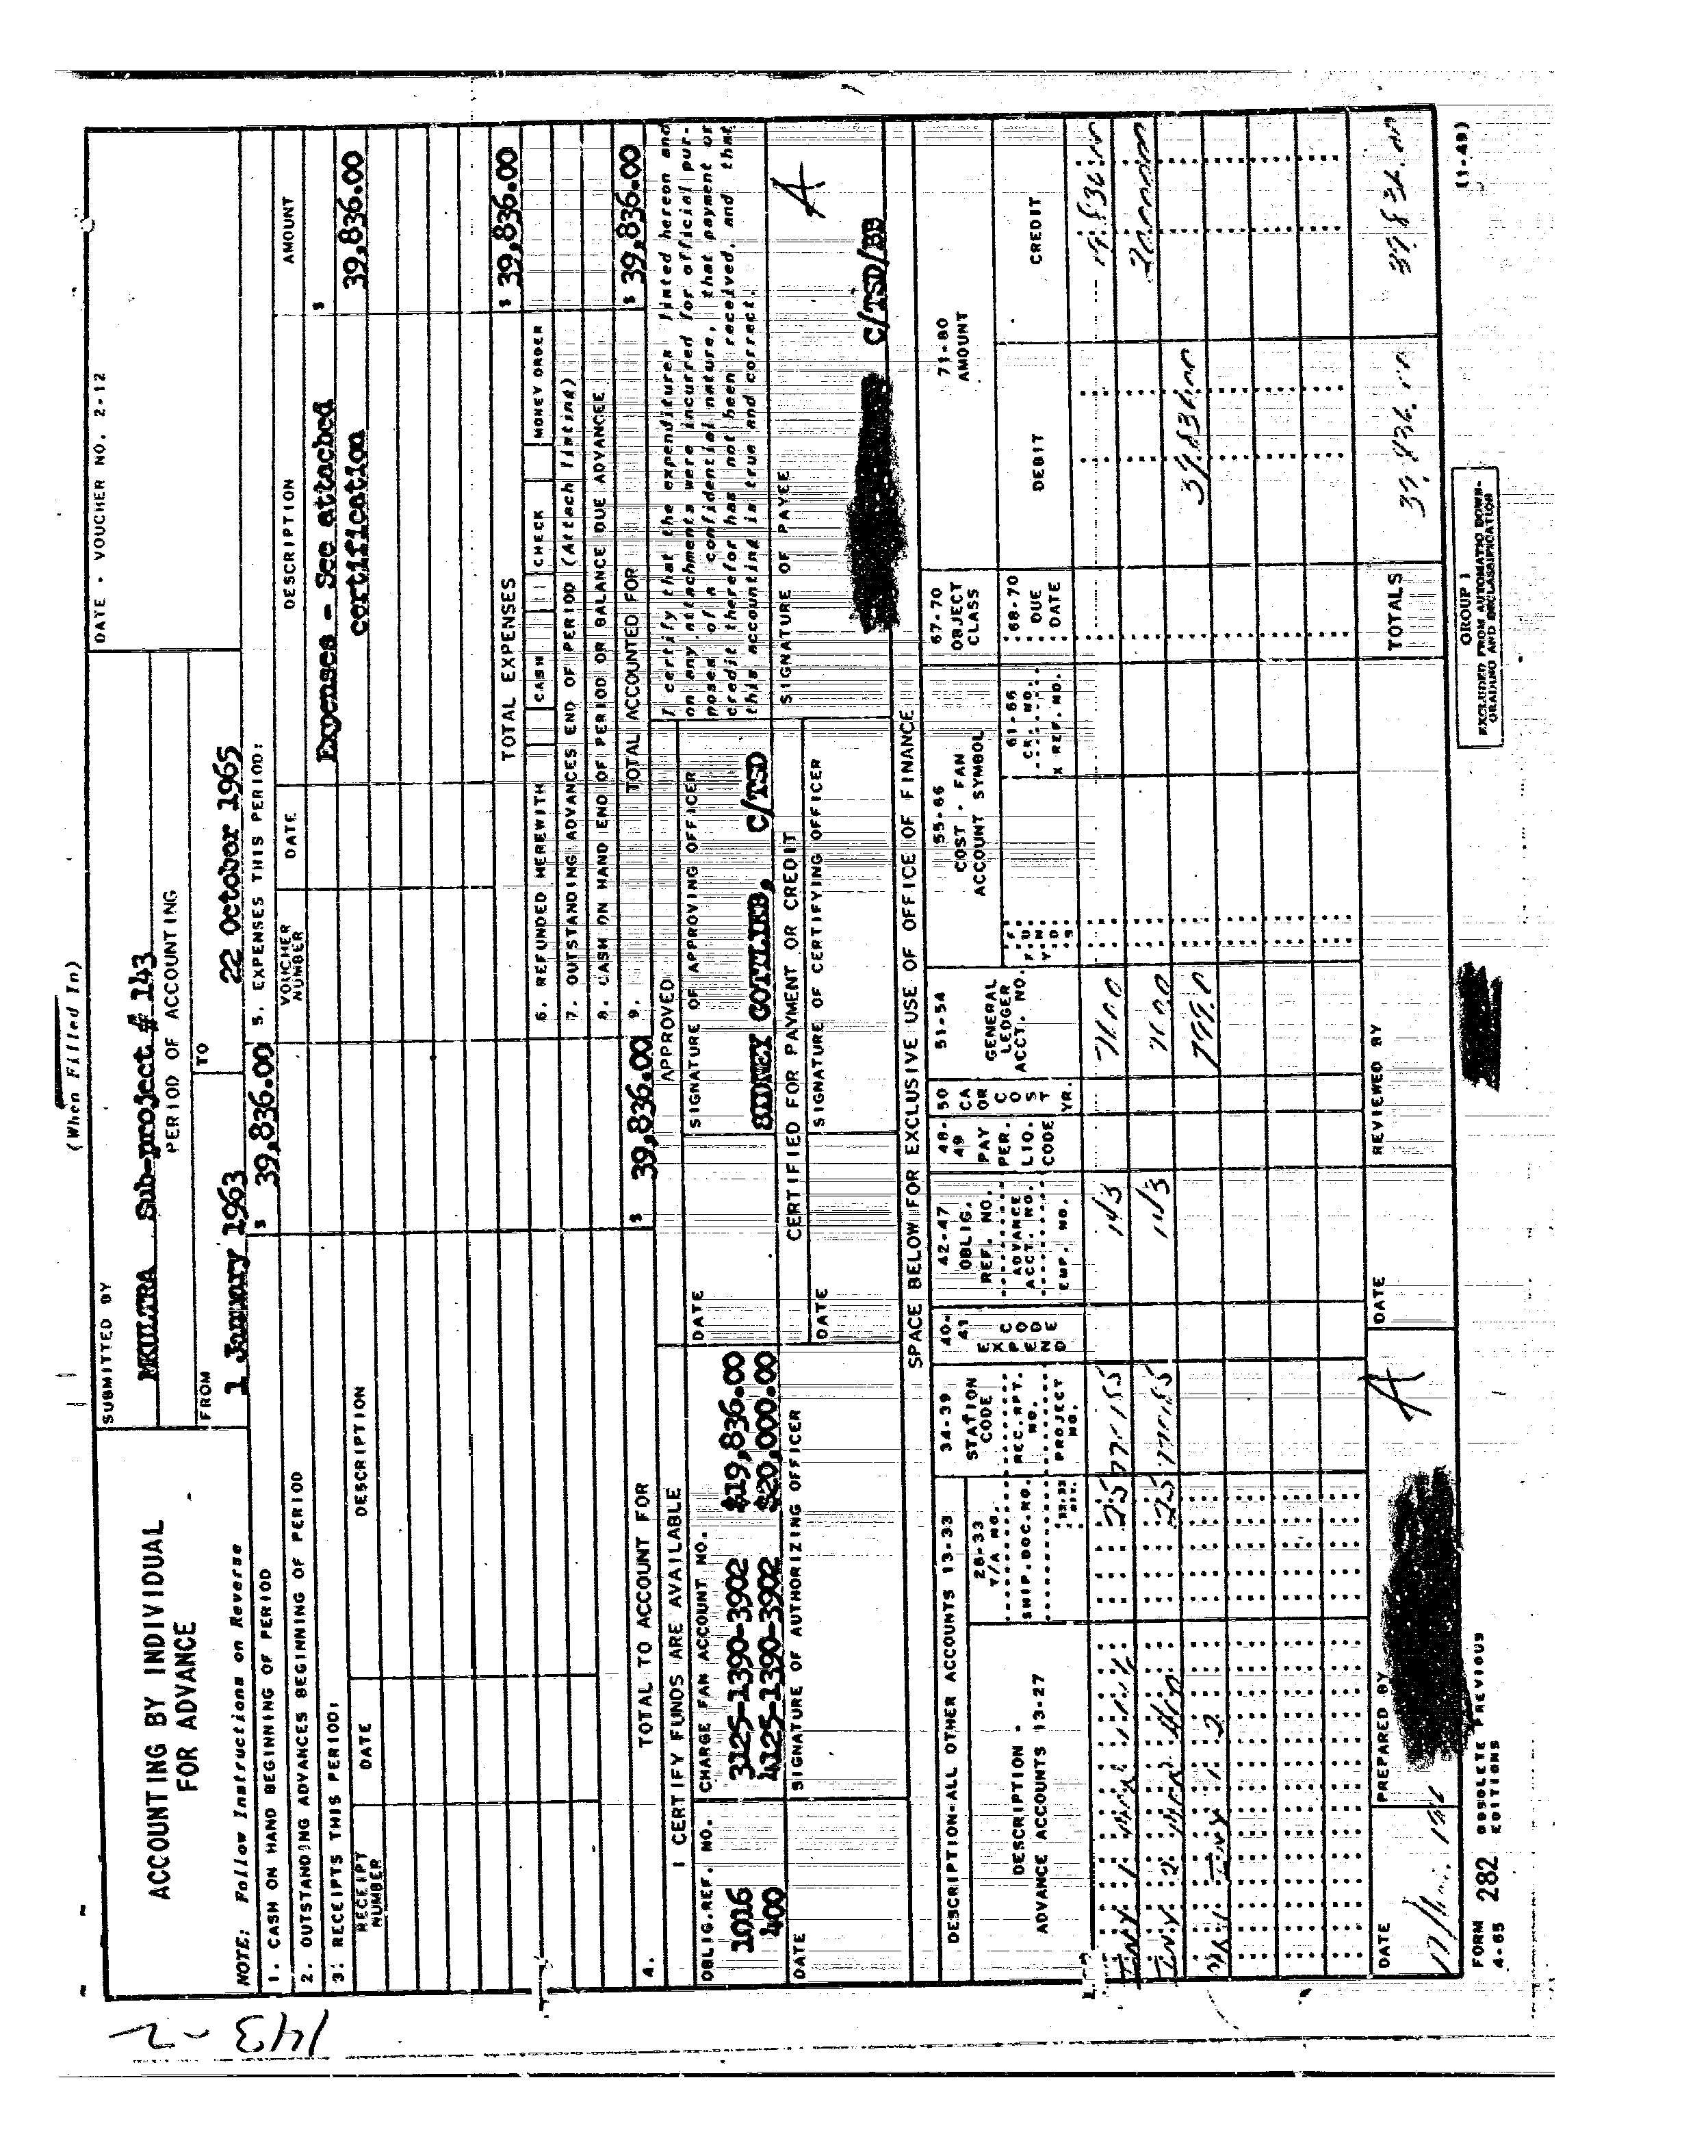 (When Filled In)
ACCOUNTING BY INDIVIDUAL
FOR ADVANCE
SUBMITTED BY
MKULTRA Sub-project # 143
DATE - VOUCHER NO. 2-12
PERIOD OF ACCOUNTING
FROM
1 January 1963
TO
22 October 1965
NOTE: Follow Instructions on Reverse
1. CASH ON HAND BEGINNING OF PERIOD
$ 39,836.00
2. OUTSTANDING ADVANCES BEGINNING OF PERIOD
3. RECEIPTS THIS PERIOD:
RECEIPT NUMBER
DATE
DESCRIPTION
5. EXPENSES THIS PERIOD:
VOUCHER NUMBER
DATE
DESCRIPTION
AMOUNT
$
Expenses - See attached
certification
39,836.00
TOTAL EXPENSES
$ 39,836.00
6. REFUNDED HEREWITH
CASH
CHECK
MONEY ORDER
7. OUTSTANDING ADVANCES END OF PERIOD (Attach listing)
8. CASH ON HAND END OF PERIOD OR BALANCE DUE ADVANCEE
4. TOTAL TO ACCOUNT FOR
$ 39,836.00
9. TOTAL ACCOUNTED FOR
$ 39,836.00
I CERTIFY FUNDS ARE AVAILABLE
OBLIG.REF. NO.
CHARGE FAN ACCOUNT NO.
1016 3125-1390-3902 $19,836.00
400 4125-1390-3902 $20,000.00
DATE
SIGNATURE OF AUTHORIZING OFFICER
APPROVED
DATE
SIGNATURE OF APPROVING OFFICER
SIDNEY GOTTLIEB, C/TSD
CERTIFIED FOR PAYMENT OR CREDIT
DATE
SIGNATURE OF CERTIFYING OFFICER
I certify that the expenditures listed hereon and
on any attachments were incurred for official pur-
poses of a confidential nature, that payment or
credit therefor has not been received, and that
this accounting is true and correct.
SIGNATURE OF PAYEE
A
C/TSD/BB
SPACE BELOW FOR EXCLUSIVE USE OF OFFICE OF FINANCE
DESCRIPTION-ALL OTHER ACCOUNTS 13-33
DESCRIPTION -
ADVANCE ACCOUNTS 13-27
28-33
T/A NO.
SHIP.DOC.NO.
34-39
STATION
CODE
REC.RPT.
NO.
PROJECT
NO.
40-41
EXPEND
CODE
42-47
OBLIG.
REF. NO.
ADVANCE
ACCT. NO.
EMP. NO.
48-49
PAY
PER.
LIQ.
CODE
50
CA
OR
COST
YR.
51-54
GENERAL
LEDGER
ACCT. NO.
55-66
COST - FAN
ACCOUNT SYMBOL
61-66
CK. NO.
X REF. NO.
67-70
OBJECT
CLASS
68-70
DUE
DATE
71-80
AMOUNT
DEBIT
CREDIT
25
143
25
143
TOTALS
DATE
PREPARED BY
A
DATE
REVIEWED BY
FORM 282 OBSOLETE PREVIOUS
4-65 EDITIONS
GROUP 1
EXCLUDED FROM AUTOMATIC DOWN-
GRADING AND DECLASSIFICATION
(1-49)
143-2